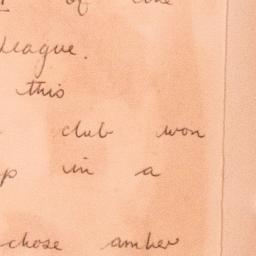 of the
League.
this
club won
in a
chose amber